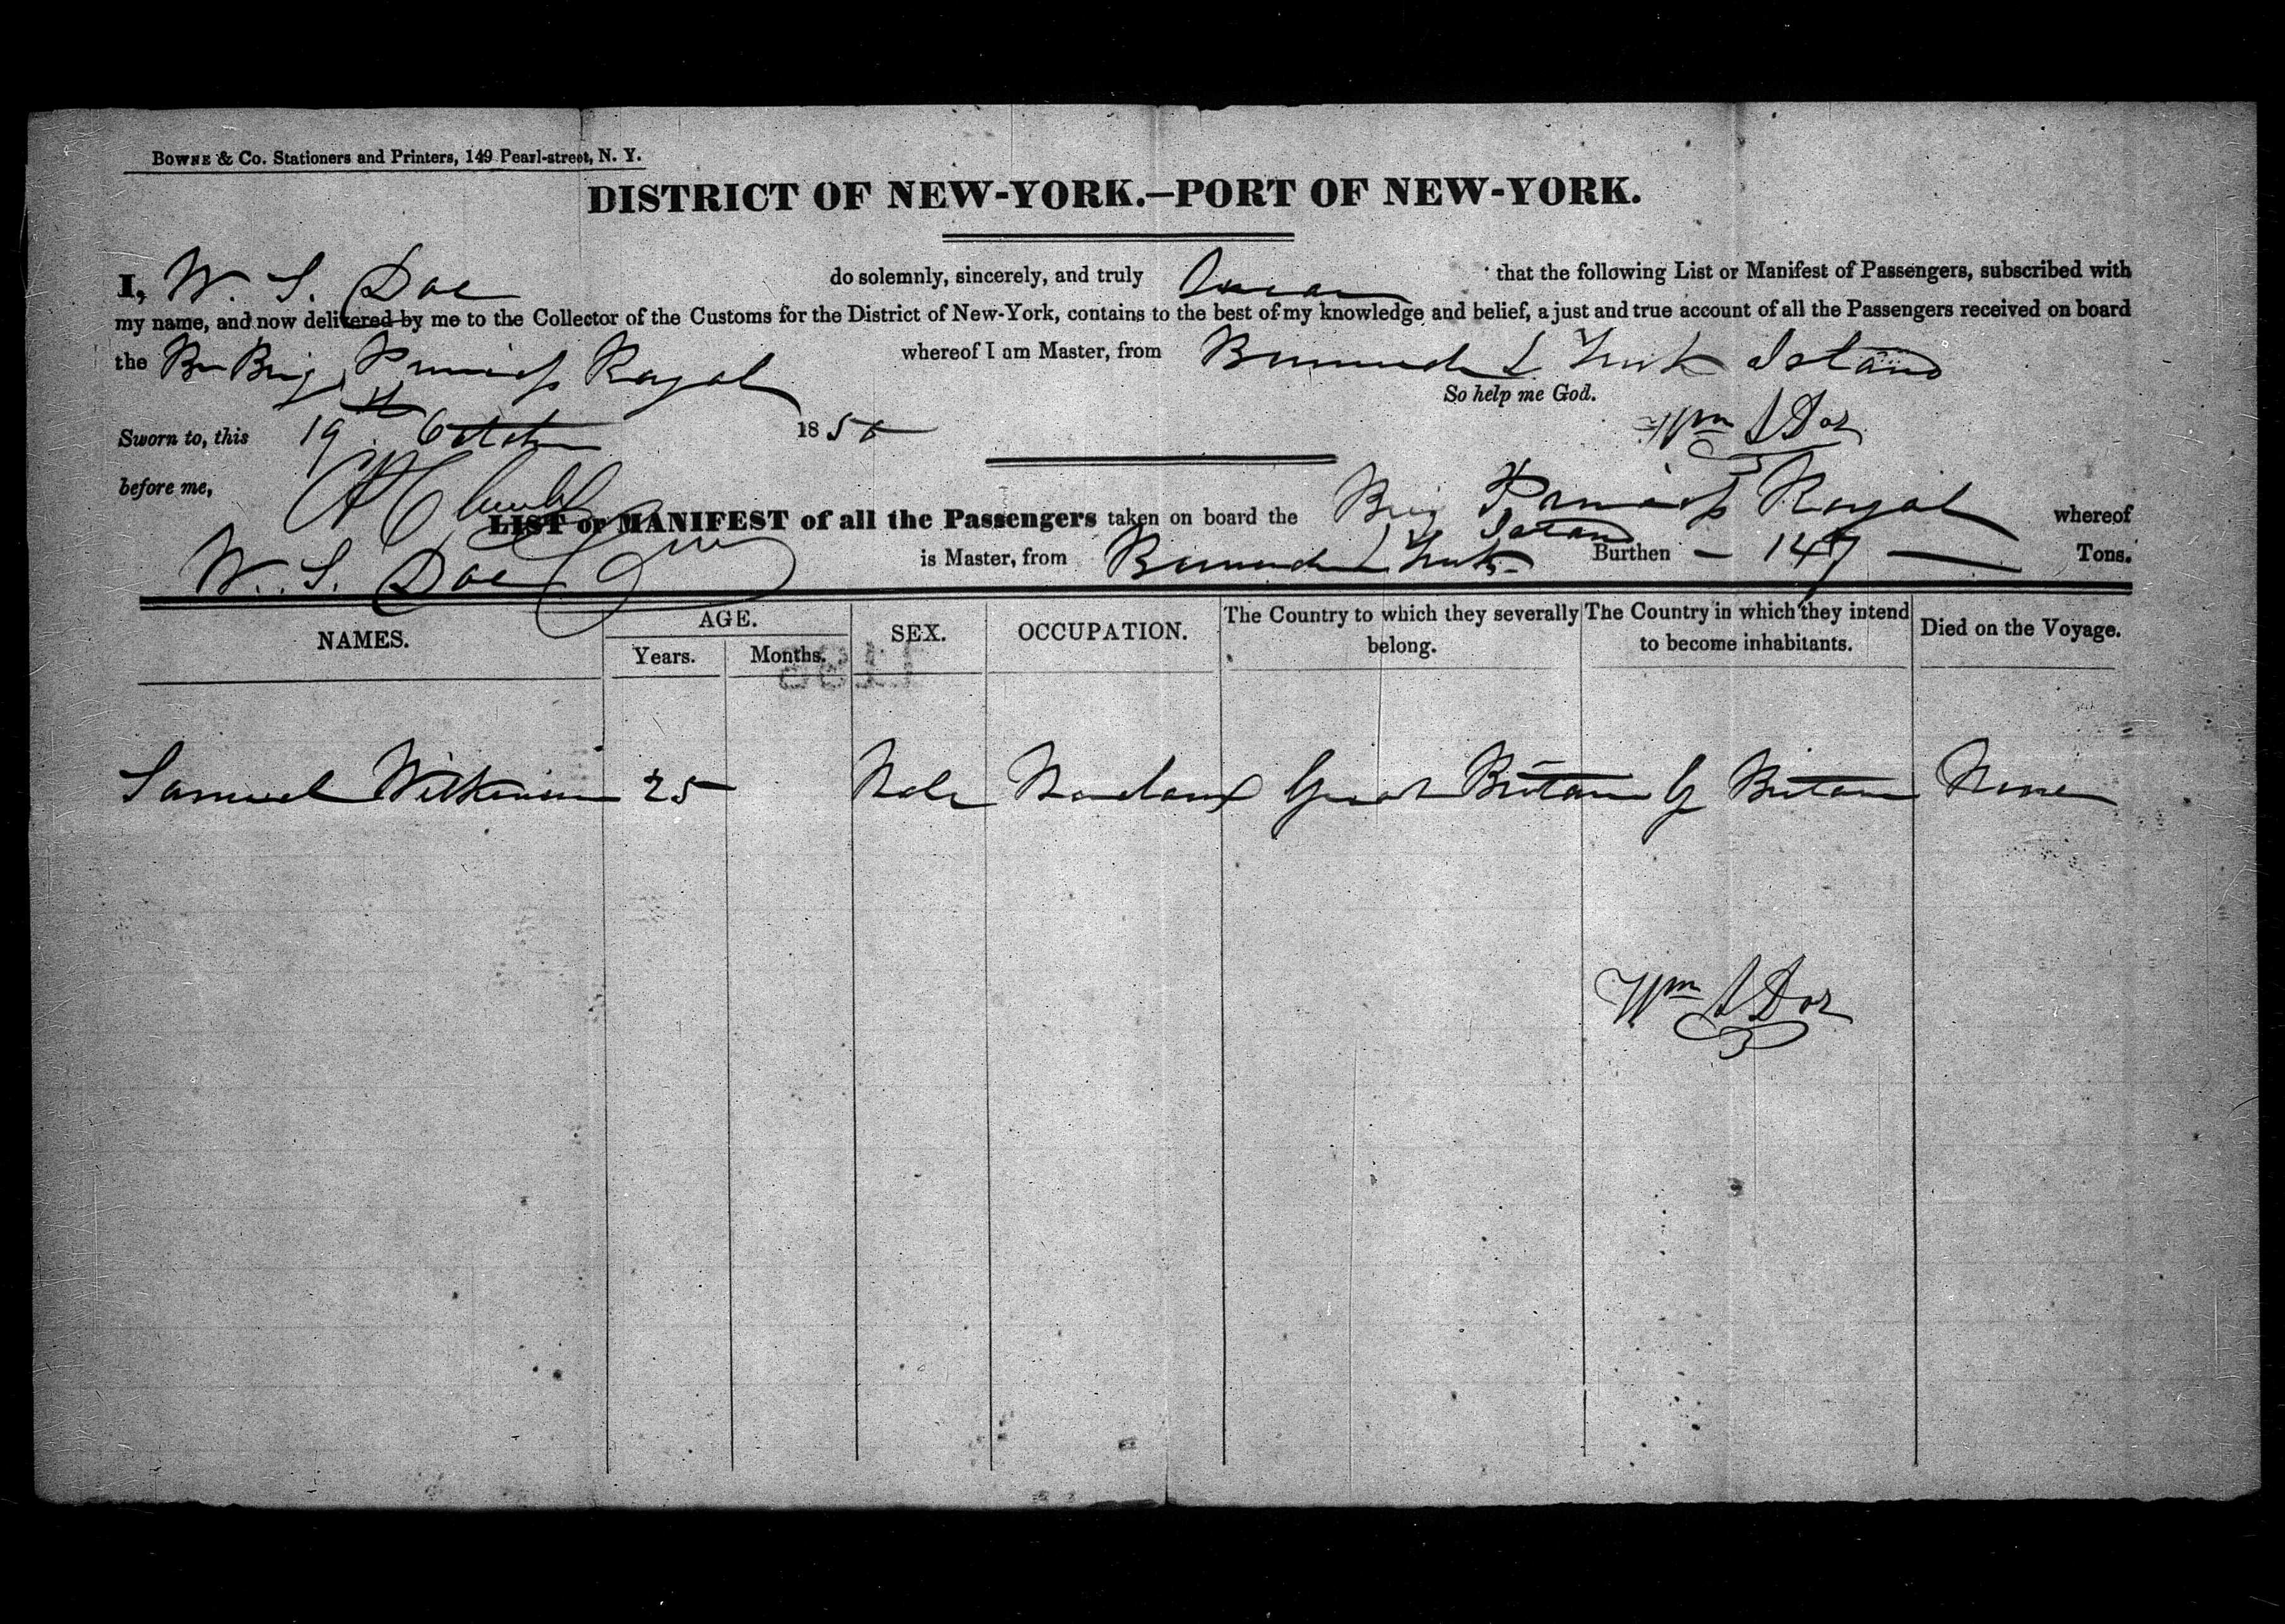 BOWNE & Co. Stationers and Printers, 149 Pearl-street, N. Y.
DISTRICT OF NEW-YORK.—PORT OF NEW-YORK.
I, W. S. Doe do solemnly, sincerely, and truly Swear that the following List or Manifest of Passengers, subscribed with
my name, and now delivered by me to the Collector of the Customs for the District of New-York, contains to the best of my knowledge and belief, a just and true account of all the Passengers received on board
the Br Brig Princess Royal whereof I am Master, from Bermuda & Turk Island
So help me God.
Sworn to, this 19th October 185 Wm S Doe
before me,
LIST or MANIFEST of all the Passengers taken on board the Brig Princess Royal whereof
W. S. Doe is Master, from Bermuda & Turks Island Burthen — 147 — Tons.
NAMES. AGE. SEX. OCCUPATION. The Country to which they severally belong. The Country in which they intend to become inhabitants. Died on the Voyage.
Years. Months.
Samuel Wilkinson 25 Male Great Britain G Britain None
Wm S Doe